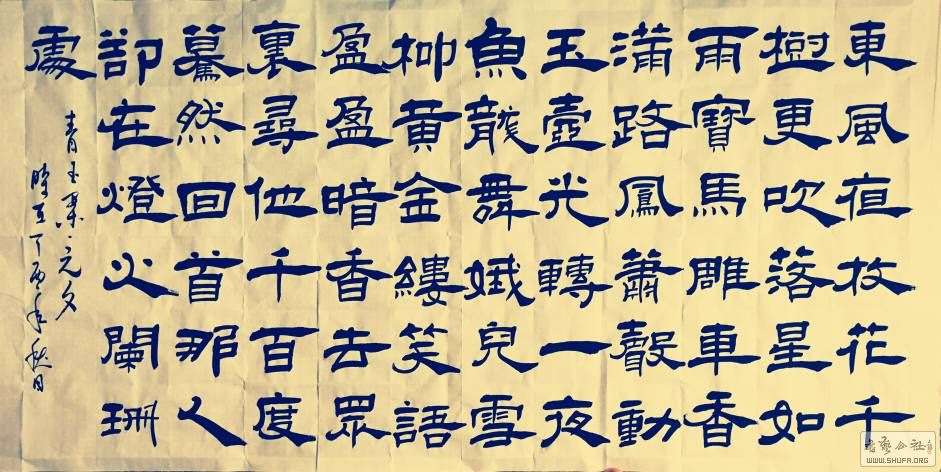 東風夜放花千
樹更吹落星如
雨寶馬雕車香
滿路鳳簫聲動
玉壺光轉一夜
魚龍舞娥兒雪
柳黃金縷笑語
盈盈暗香去眾
裏尋他千百度
驀然回首那人
卻在燈火闌珊
處
青玉案·元夕
時丁酉年秋日
書藝公社
WWW.SHUFA.ORG